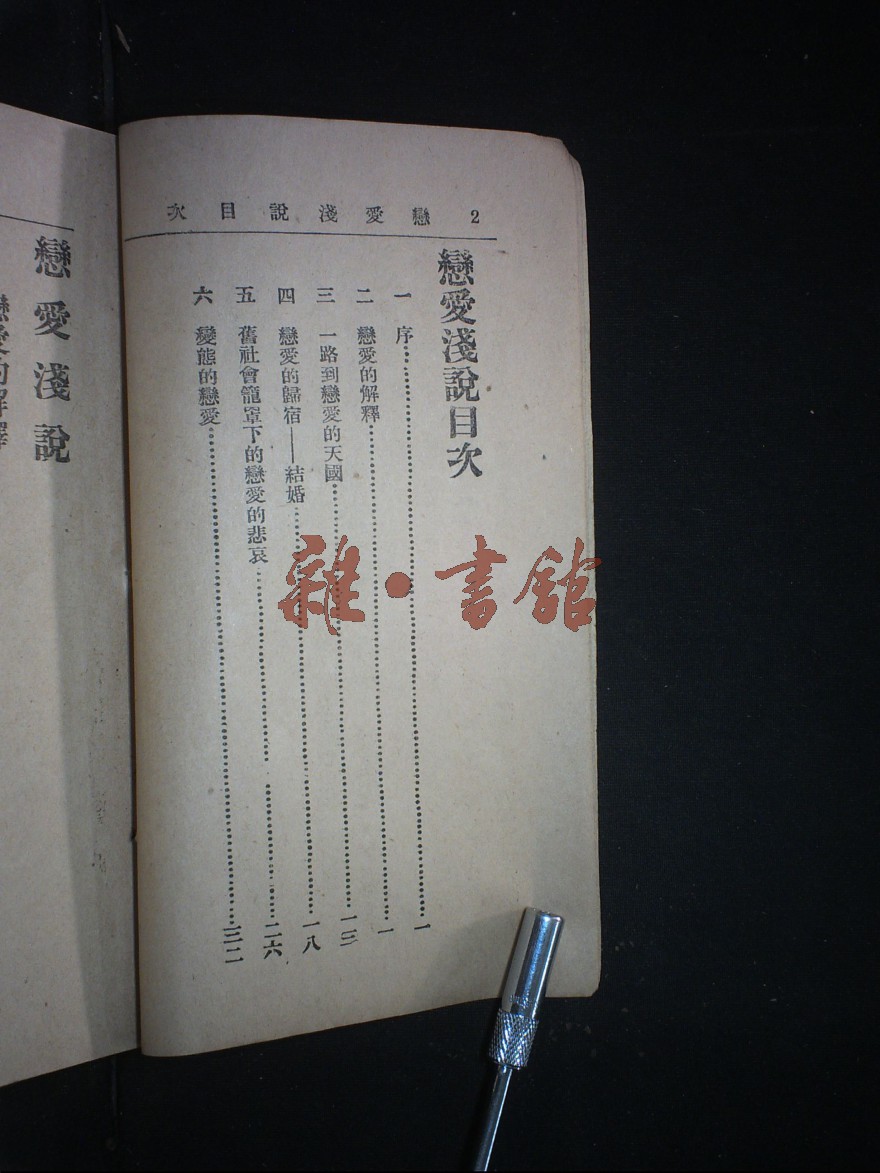 2 戀愛淺說目次
戀愛淺說目次
一 序……一
二 戀愛的解釋……一
三 一路到戀愛的天國……一三
四 戀愛的歸宿——結婚……一八
五 舊社會籠罩下的戀愛的悲哀……二六
六 變態的戀愛……三二
戀愛淺說
戀愛的解釋
雜·書館